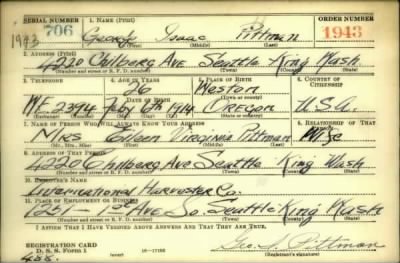 SERIAL NUMBER 1. NAME (Print) ORDER NUMBER
1943 706 George Isaac Pittman 1943
(First) (Middle) (Last)
2. ADDRESS (Print)
4220 Chilberg Ave Seattle King Wash
(Number and street or R. F. D. number) (Town) (County) (State)
3. TELEPHONE 4. AGE IN YEARS 5. PLACE OF BIRTH 6. COUNTRY OF CITIZENSHIP
26 Weston
WE 2394 Feby 6th 1914 Oregon U.S.A.
7. NAME OF PERSON WHO WILL ALWAYS KNOW YOUR ADDRESS 8. RELATIONSHIP OF THAT PERSON
Mrs Eileen Virginia Pittman Wife
(Mr., Mrs., Miss) (First) (Middle) (Last)
9. ADDRESS OF THAT PERSON
4220 Chilberg Ave Seattle King Wash
(Number and street or R. F. D. number) (Town) (County) (State)
10. EMPLOYER'S NAME
International Harvester Co.
11. PLACE OF EMPLOYMENT OR BUSINESS
1251 - 1st Ave So. Seattle King Wash
(Number and street or R. F. D. number) (Town) (County) (State)
I AFFIRM THAT I HAVE VERIFIED ABOVE ANSWERS AND THAT THEY ARE TRUE.
REGISTRATION CARD
D. S. S. Form 1 Geo. I. Pittman